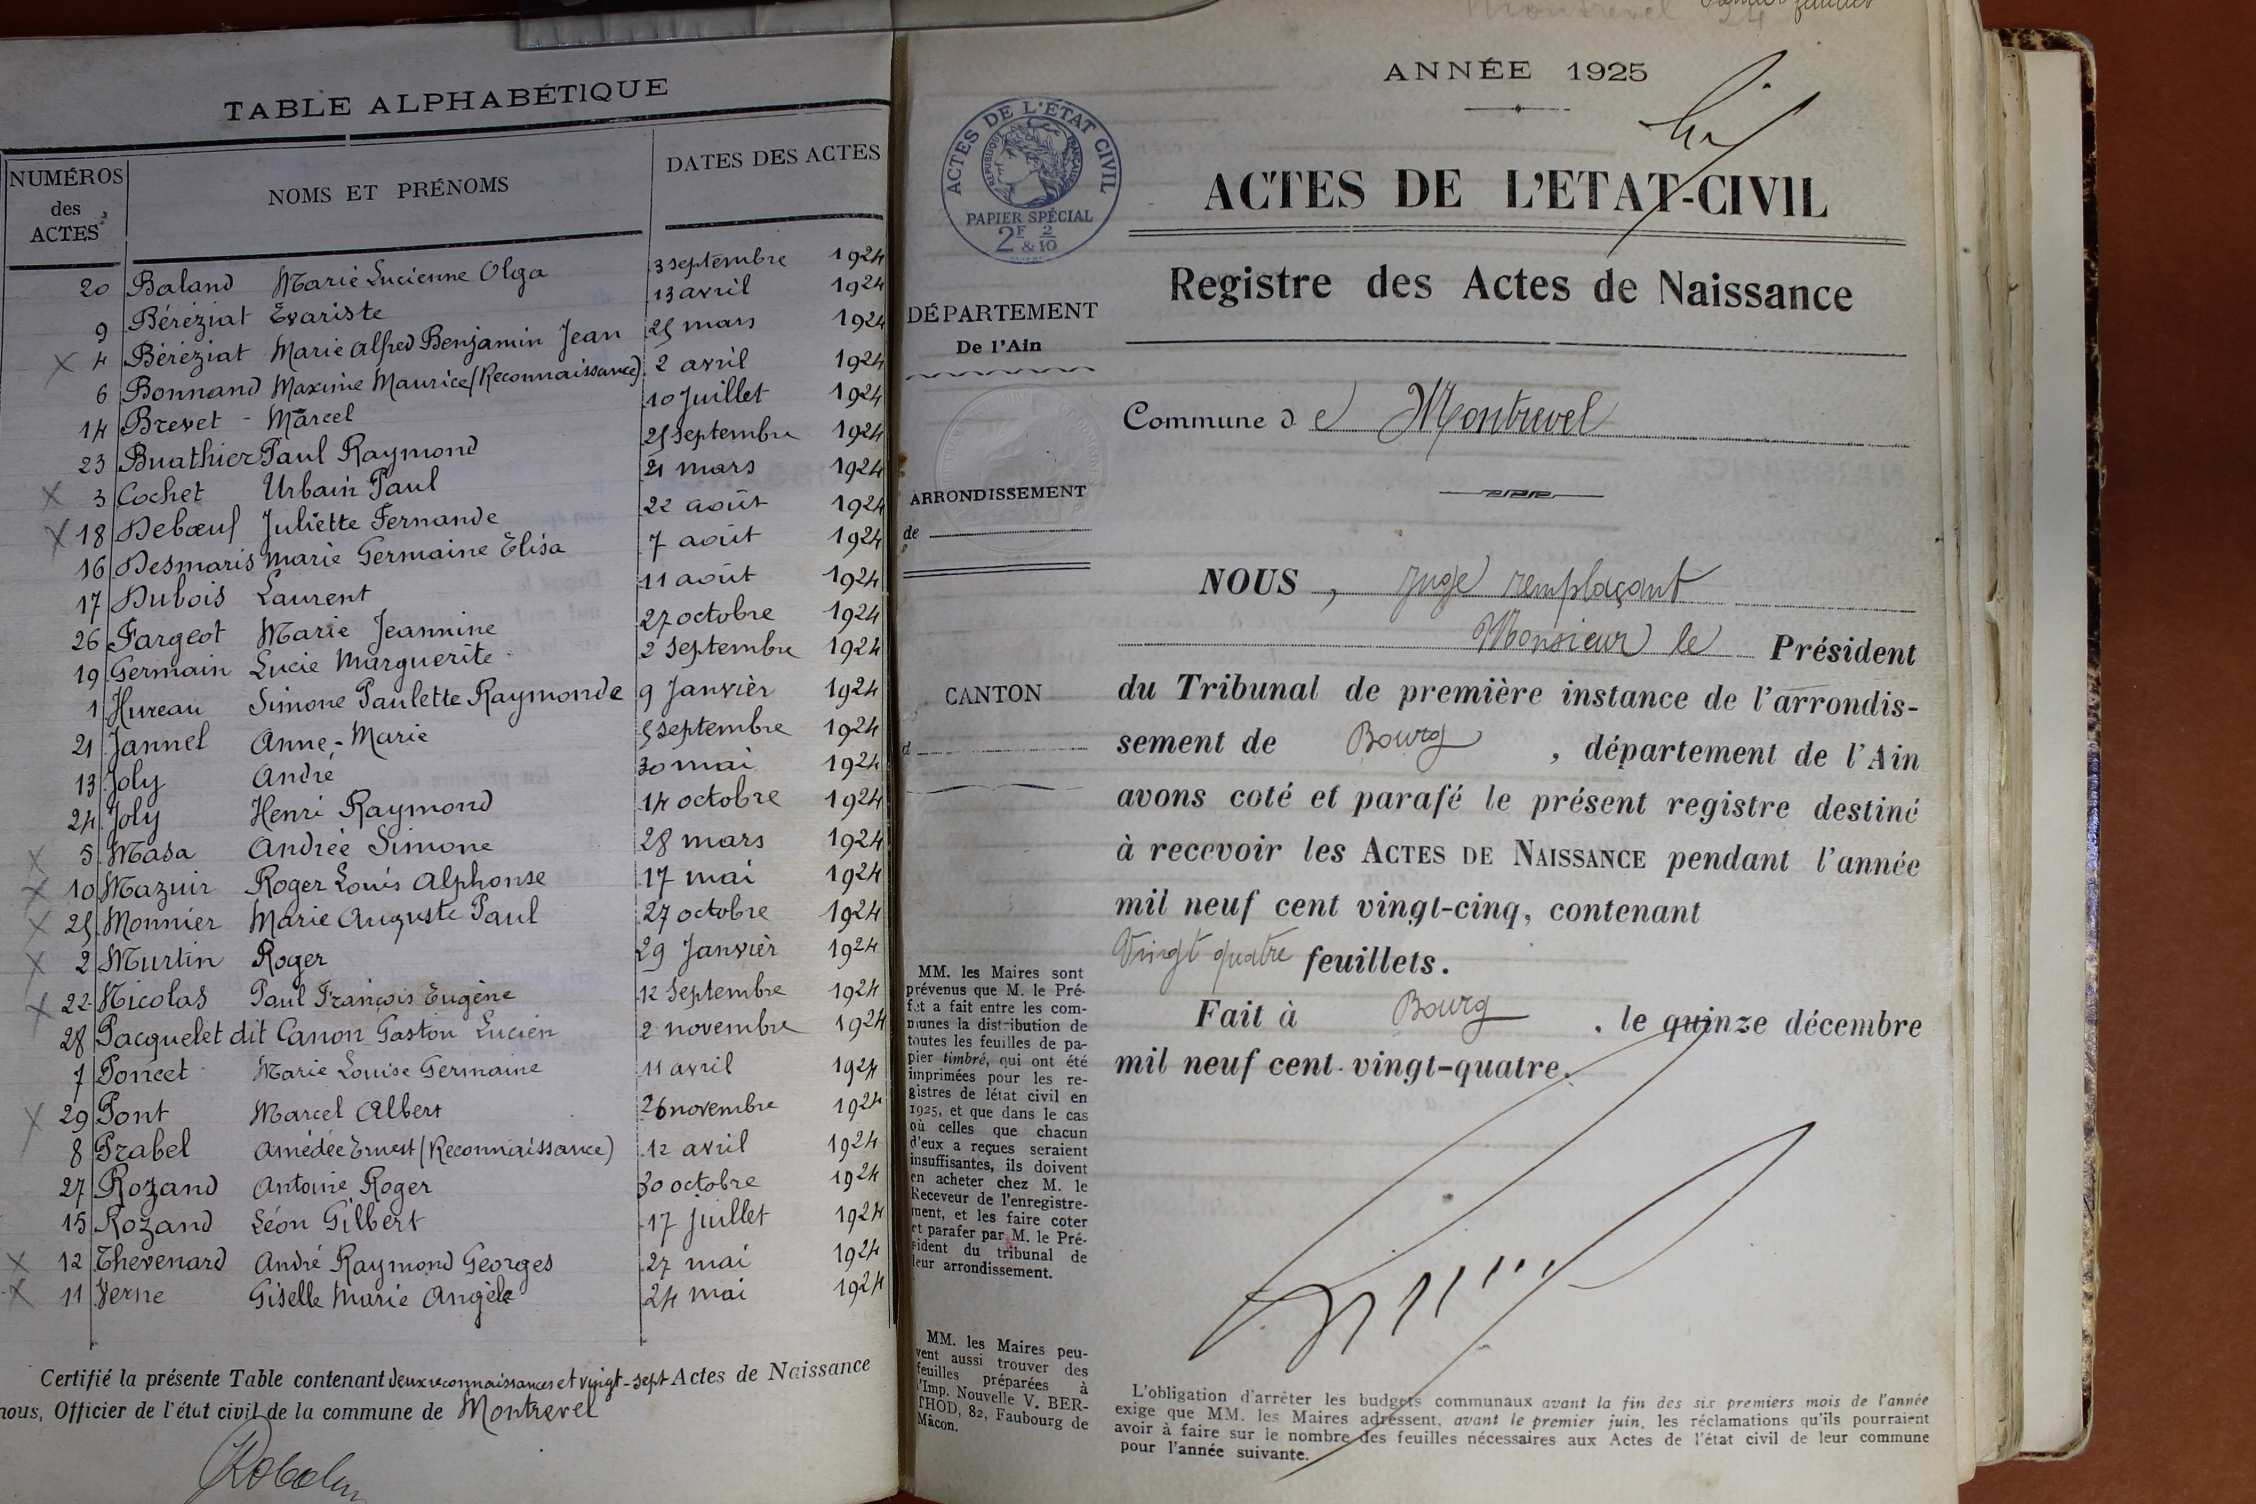 TABLE ALPHABÉTIQUE
NUMÉROS des ACTES NOMS ET PRÉNOMS DATES DES ACTES
20 Baland Marie Lucienne Olga 3 septembre 1924
9 Béréziat Évariste 13 avril 1924
4 Béréziat Marie Alfred Benjamin Jean 25 mars 1924
6 Bonnand Maxime Maurice (Reconnaissance) 2 avril 1924
14 Brevet - Marcel 10 Juillet 1924
23 Buathier Paul Raymond 25 septembre 1924
3 Cochet Urbain Paul 21 mars 1924
18 Debœuf Juliette Fernande 22 août 1924
16 Desmaris Marie Germaine Elisa 7 août 1924
17 Dubois Laurent 11 août 1924
26 Fargeot Marie Jeannine 27 octobre 1924
19 Germain Lucie Marguerite 2 septembre 1924
1 Hureau Simone Paulette Raymonde 9 Janvier 1924
21 Jannel Anne-Marie 5 septembre 1924
13 Joly André 30 mai 1924
24 Joly Henri Raymond 14 octobre 1924
5 Masa Andrée Simone 28 mars 1924
10 Mazuir Roger Louis Alphonse 17 mai 1924
25 Monnier Marie Auguste Paul 27 octobre 1924
2 Murtin Roger 29 Janvier 1924
22 Nicolas Paul François Eugène 12 septembre 1924
28 Pacquelet dit Canon Gaston Lucien 2 novembre 1924
7 Poncet Marie Louise Germaine 11 avril 1924
29 Pont Marcel Albert 26 novembre 1924
8 Prabel Amédée Ernest (Reconnaissance) 12 avril 1924
27 Rozand Antoine Roger 30 octobre 1924
15 Rozand Léon Gilbert 17 juillet 1924
12 Thevenard André Raymond Georges 27 mai 1924
11 Verne Giselle Marie Angèle 24 mai 1924
Certifié la présente Table contenant deux reconnaissances et vingt-sept Actes de Naissance
nous, Officier de l'état civil de la commune de Montrevel
Montrevel
ANNÉE 1925
ACTES DE L'ÉTAT CIVIL
RÉPUBLIQUE FRANÇAISE
PAPIER SPÉCIAL
2F & 2/10
ACTES DE L'ETAT-CIVIL
Registre des Actes de Naissance
DÉPARTEMENT
De l'Ain
Commune de Montrevel
ARRONDISSEMENT
de
CANTON
d
NOUS, juge remplaçant
Monsieur le Président
du Tribunal de première instance de l'arrondis-
sement de Bourg, département de l'Ain
avons coté et parafé le présent registre destiné
à recevoir les ACTES DE NAISSANCE pendant l'année
mil neuf cent vingt-cinq, contenant
Vingt quatre feuillets.
Fait à Bourg, le quinze décembre
mil neuf cent vingt-quatre.
MM. les Maires sont
prévenus que M. le Pré-
fet a fait entre les com-
munes la distribution de
toutes les feuilles de pa-
pier timbré, qui ont été
imprimées pour les re-
gistres de létat civil en
1925, et que dans le cas
où celles que chacun
d'eux a reçues seraient
insuffisantes, ils doivent
en acheter chez M. le
Receveur de l'enregistre-
ment, et les faire coter
et parafer par M. le Pré-
sident du tribunal de
leur arrondissement.
MM. les Maires peu-
vent aussi trouver des
feuilles préparées à
l'Imp. Nouvelle V. BER-
THOD, 82, Faubourg de
Mâcon.
L'obligation d'arrêter les budgets communaux avant la fin des six premiers mois de l'année
exige que MM. les Maires adressent, avant le premier juin, les réclamations qu'ils pourraient
avoir à faire sur le nombre des feuilles nécessaires aux Actes de l'état civil de leur commune
pour l'année suivante.